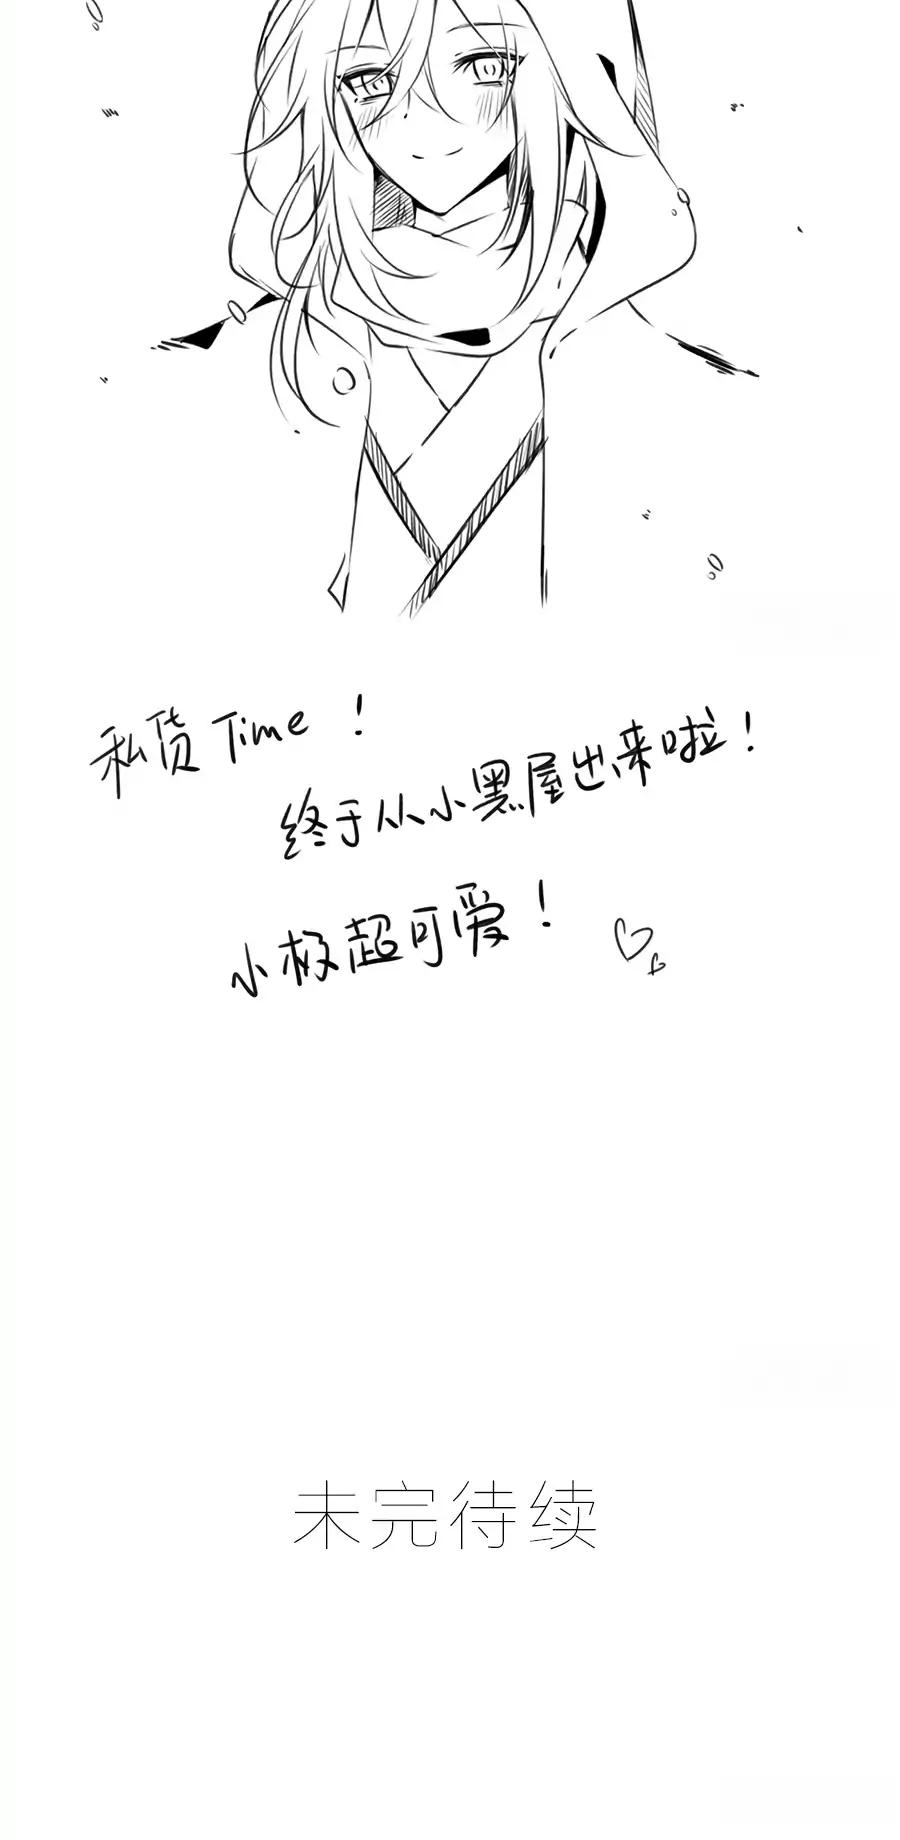 私货Time！
终于从小黑屋出来啦！
小极超可爱！
未完待续